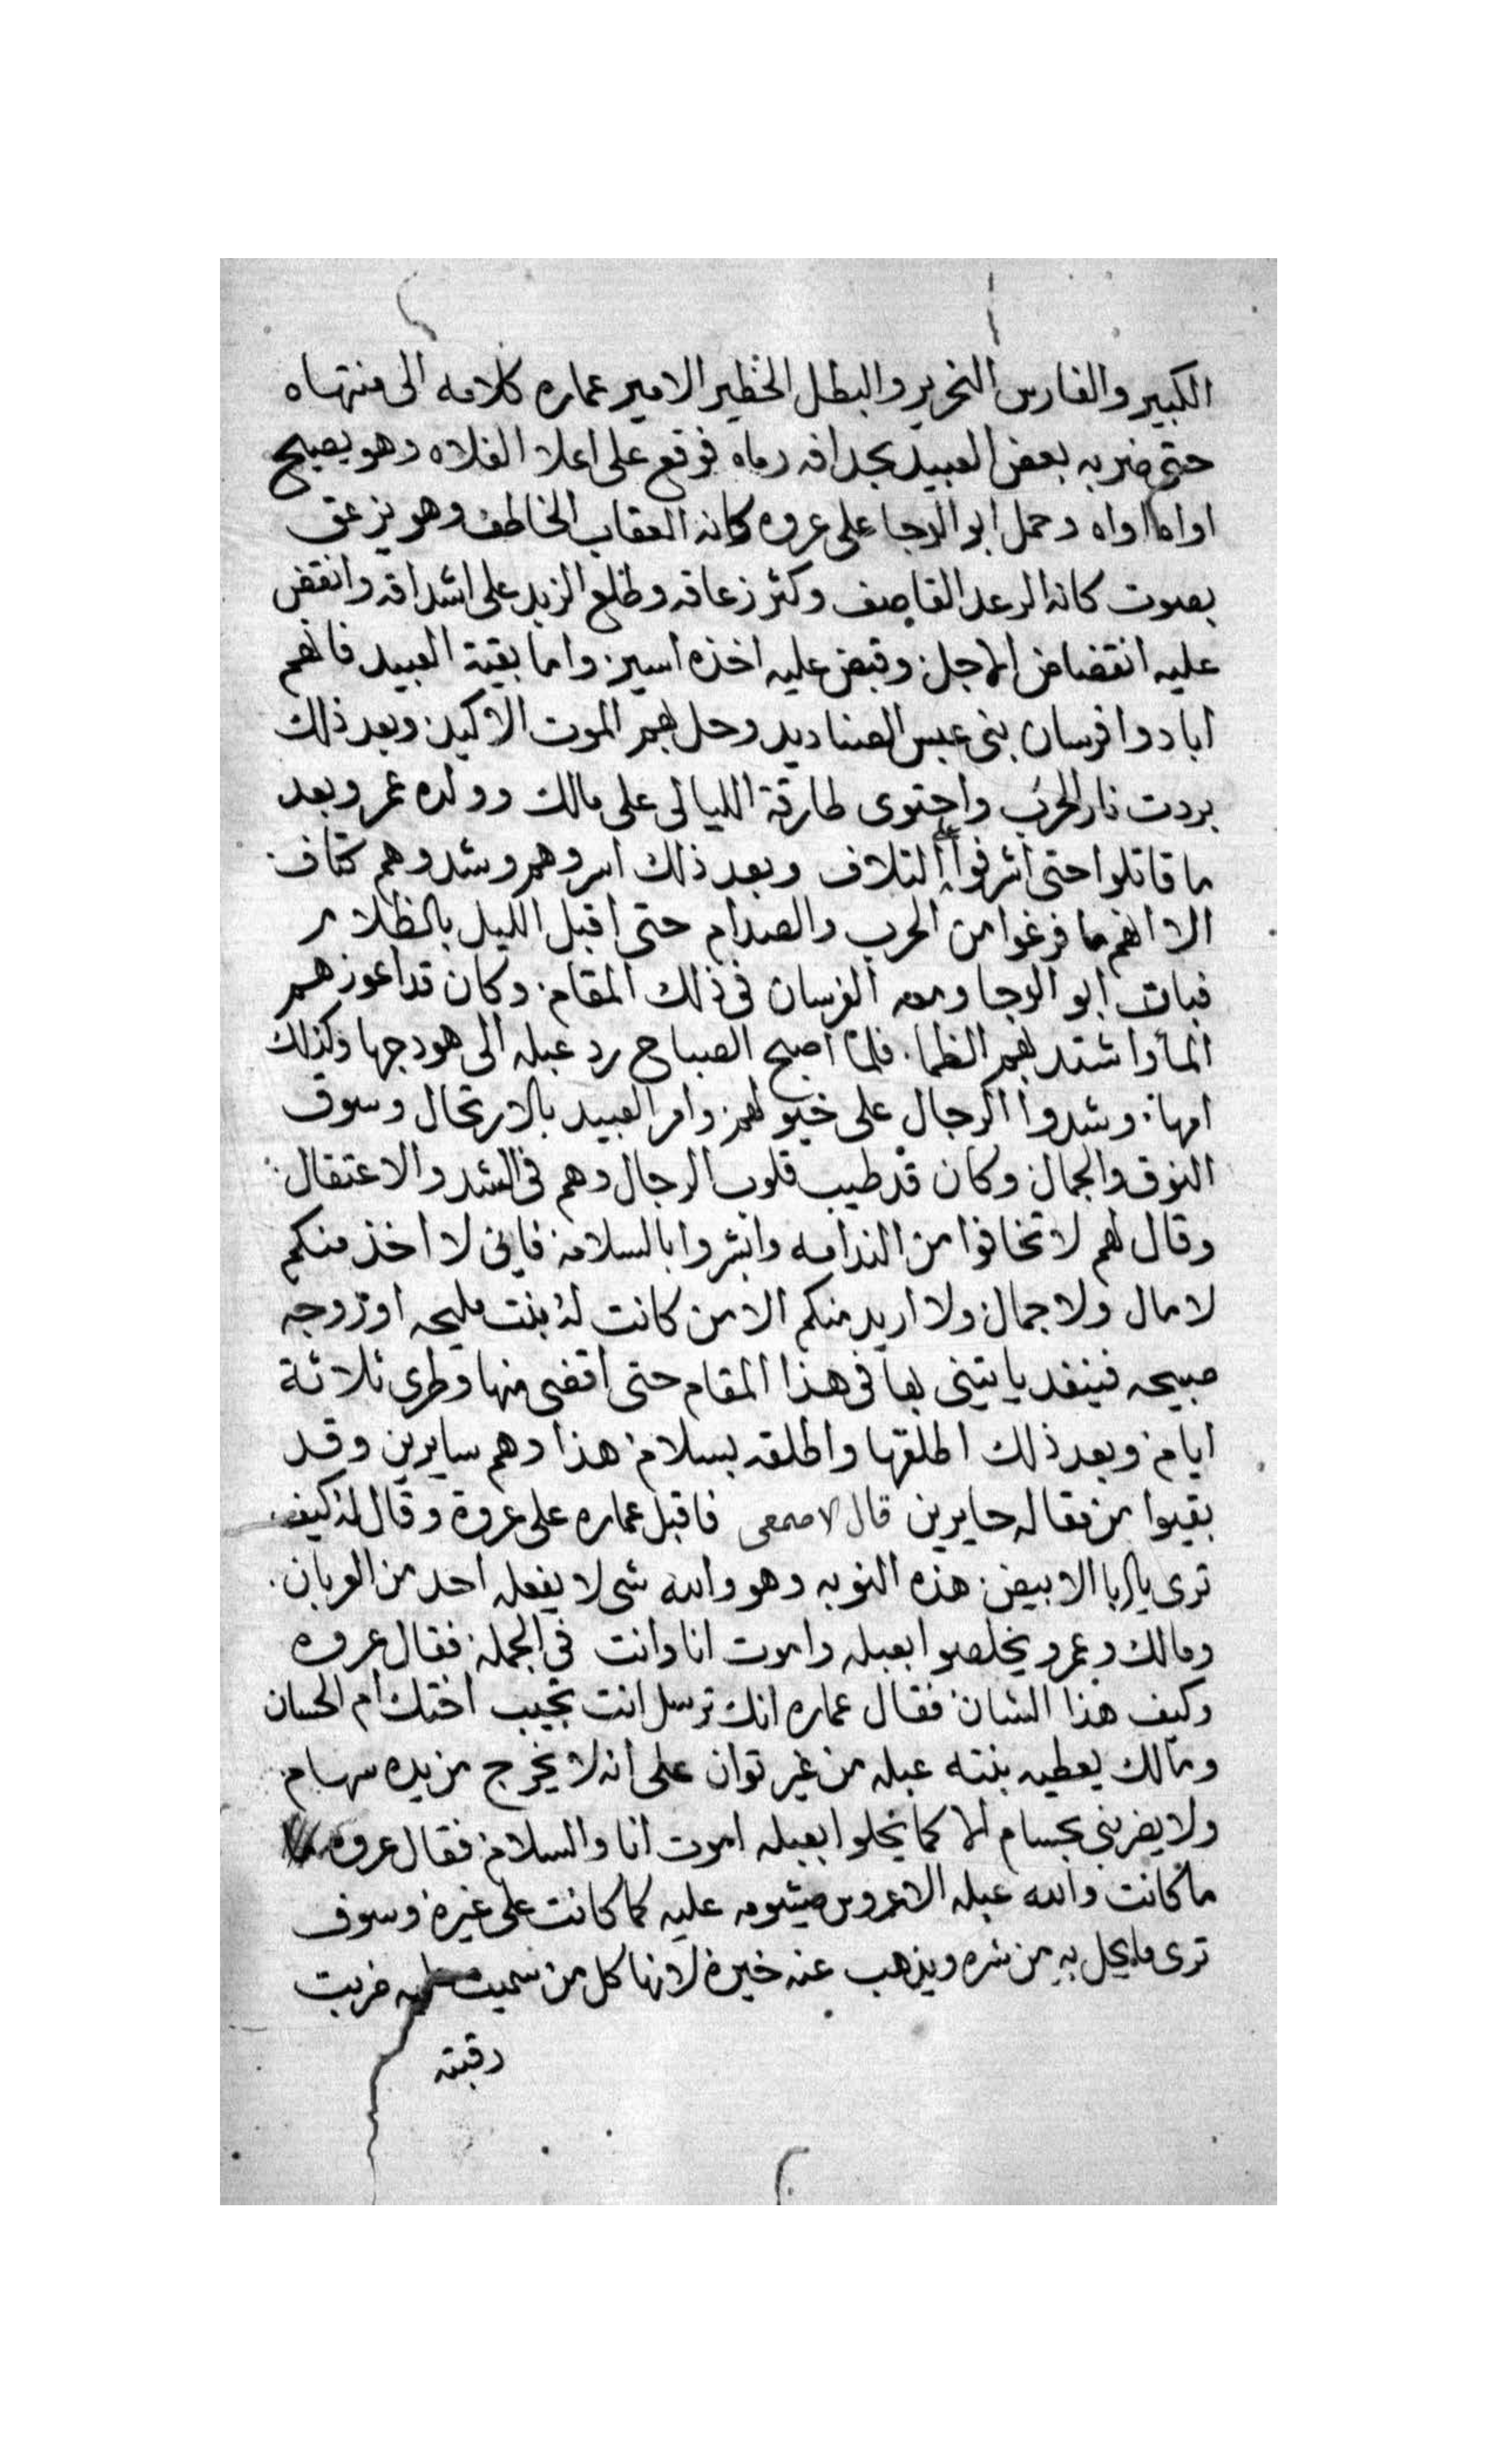 الكبير والفارس النحرير والبطل الخطير الامير عماره كلامه الى منتهاه
حتى ضربه بعض العبيد بجدافه رماه فوقع على اعلا الفلاه وهو يصيح
اواه اواه وحمل ابو الرجا على عروه كانه العقاب الخاطف وهو يزعق
بصوت كانه الرعد القاصف وكثر زعاقه وطلع الزبد على اشداقه وانقض
عليه انقضاض الاجل وقبض عليه اخذه اسير واما بقية العبيد فانهم
ابادوا فرسان بنى عبس الصناديد وحل بهم الموت الاكيد وبعد ذلك
بردت نار الحرب واحتوى طارقة الليالى على مالك وولده عمر وبعد
ما قاتلوا حتى اشرفوا على التلاف وبعد ذلك اسروهم وشدوهم كتاف
الا انهم ما فرغوا من الحرب والصدام حتى اقبل الليل بالظلام
فبات ابو الرجا ومعه الفرسان فى ذلك المقام وكان قد اعوزهم
الماء واشتد بهم الظما فلما اصبح الصباح رد عبله الى هودجها وكذلك
امها وشدوا الرجال على خيولهم وامر العبيد بالارتحال وسوق
النوق والجمال وكان قد طيب قلوب الرجال وهم فى الشد والاعتقال
وقال لهم لا تخافوا من الندامه وابشروا بالسلامة فانى لا اخذ منكم
لا مال ولا جمال ولا اريد منكم الا من كانت له بنت مليحه او زوجه
صبيحه فينفد يا يتينى بها فى هذا المقام حتى اقضى منها وطرى ثلاثة
ايام وبعد ذلك اطلقها واطلقه بسلام هذا وهم سايرين وقد
بقيوا من مقاله حايرين قال الاصمعى فاقبل عماره على عروة وقال له كيف
ترى يا ابا الابيض هذه النوبه وهو والله شى لا يفعله احد من العربان
ومالك وعمرو يخلصوا بعبله واموت انا وانت فى الجملة فقال عروه
وكيف هذا الشان فقال عماره انك ترسل انت تجيب اختك ام الحسان
ومالك يعطيه بنته عبله من غير توان على انه لا يخرج من يده سهام
ولا يضربنى بحسام الا كما يخلوا بعبله اموت انا والسلام فقال عروه
ما كانت والله عبله الا عروس ميشومه عليه كما كانت على غيره وسوف
ترى ما يحل به من شره ويذهب عنه خيره لانها كل من سميت عليه ضربت
رقبته